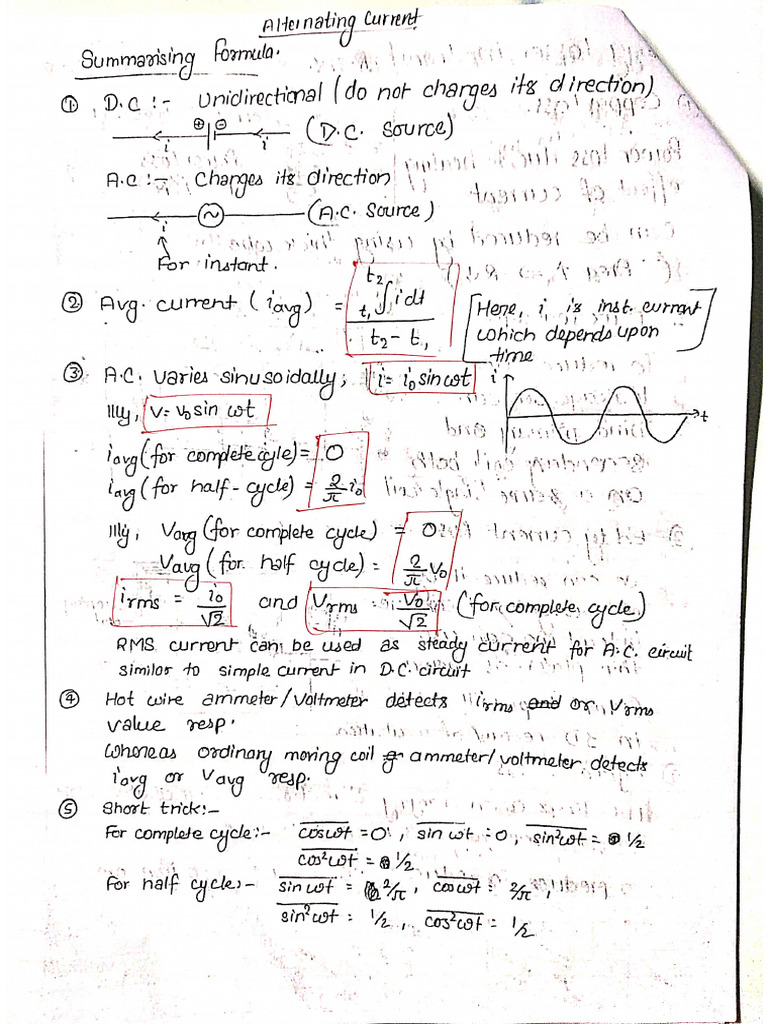 Alternating Current
Summarising Formula.
① D.C :- Unidirectional (do not charges its direction)
⊕ ⊖
i i (D.C. source)
A.C :- Changes its direction
i ~ (A.C. source)
For instant.
② Avg. current (iavg) = t₁∫t₂ i dt / t₂ - t₁ [Here, i is inst. current
which depends upon
time]
③ A.C. varies sinusoidally; i = i₀ sin ωt i t
Illy, V = V₀ sin ωt
iavg (for complete cycle) = 0
iavg (for half-cycle) = 2/π i₀
Illy, Vavg (for complete cycle) = 0
Vavg (for half cycle) = 2/π V₀
irms = i₀/√2 and Vrms = V₀/√2 (for complete cycle)
RMS current can be used as steady current for A.C. circuit
similar to simple current in D.C. circuit
④ Hot wire ammeter/voltmeter detects irms and or Vrms
value resp.
Whereas ordinary moving coil ammeter/voltmeter detects
iavg or Vavg resp.
⑤ Short trick:-
For complete cycle:- \overline{cos ωt} = 0, \overline{sin ωt} = 0, \overline{sin²ωt} = 1/2
\overline{cos²ωt} = 1/2
For half cycle:- \overline{sin ωt} = 2/π, \overline{cos ωt} = 2/π,
\overline{sin²ωt} = 1/2, \overline{cos²ωt} = 1/2